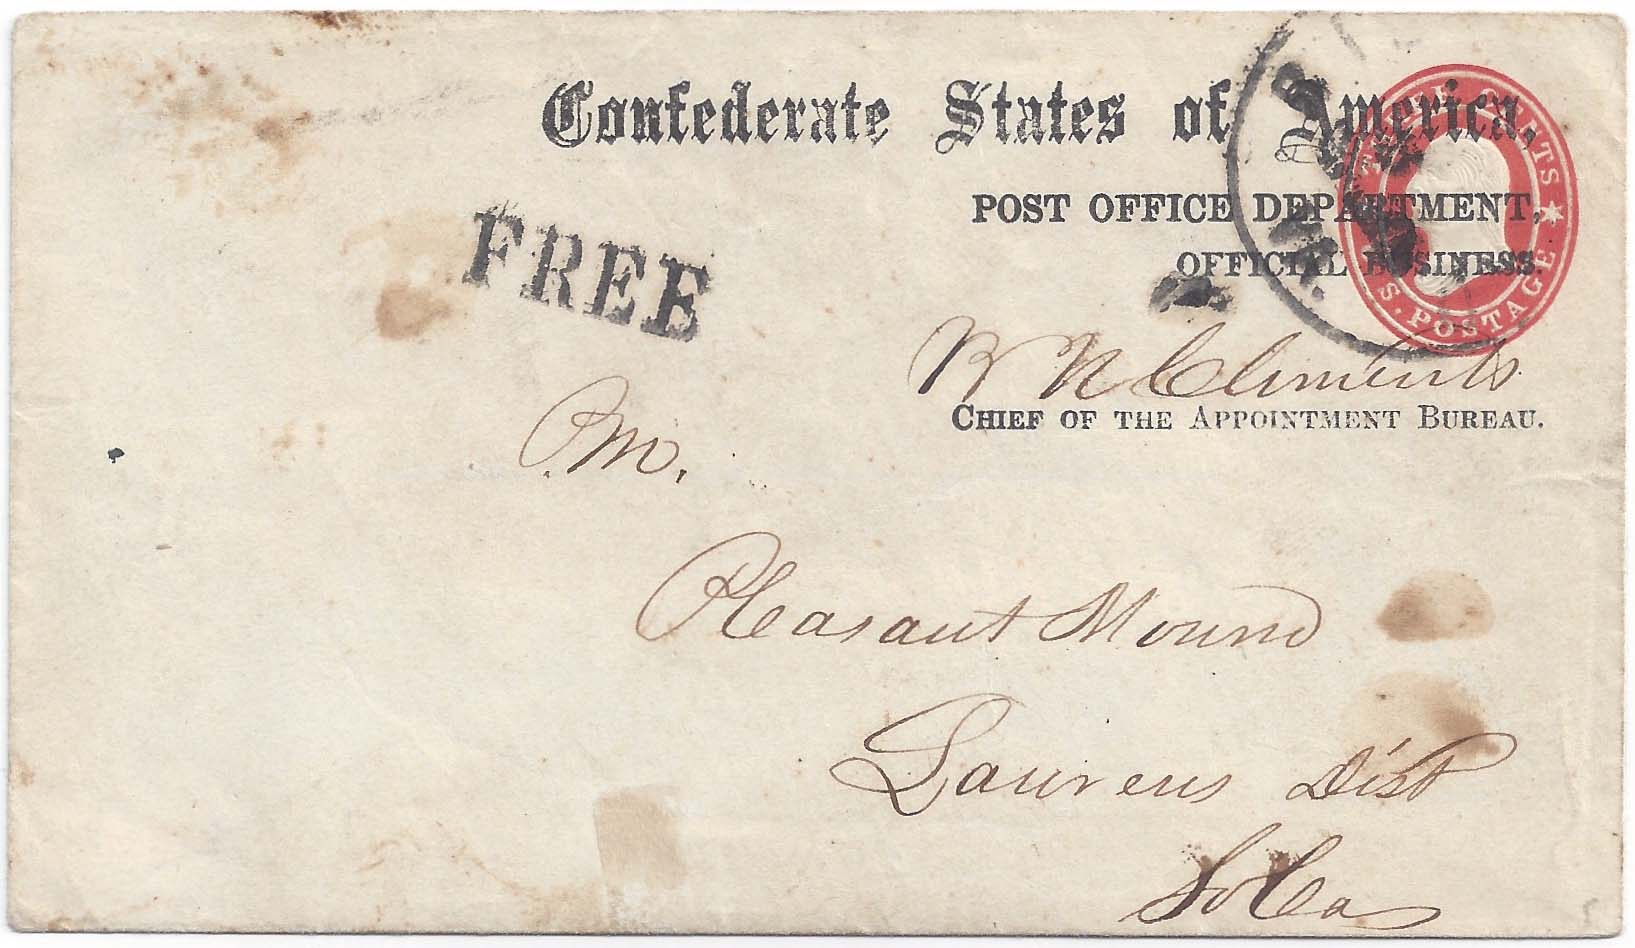 Confederate States of America,
POST OFFICE DEPARTMENT,
OFFICIAL BUSINESS.
THREE CENTS
U.S. POSTAGE
VA.
FREE
B N Clements
CHIEF OF THE APPOINTMENT BUREAU.
P.m.
Pleasant Mound
Laurens Dist
So Ca